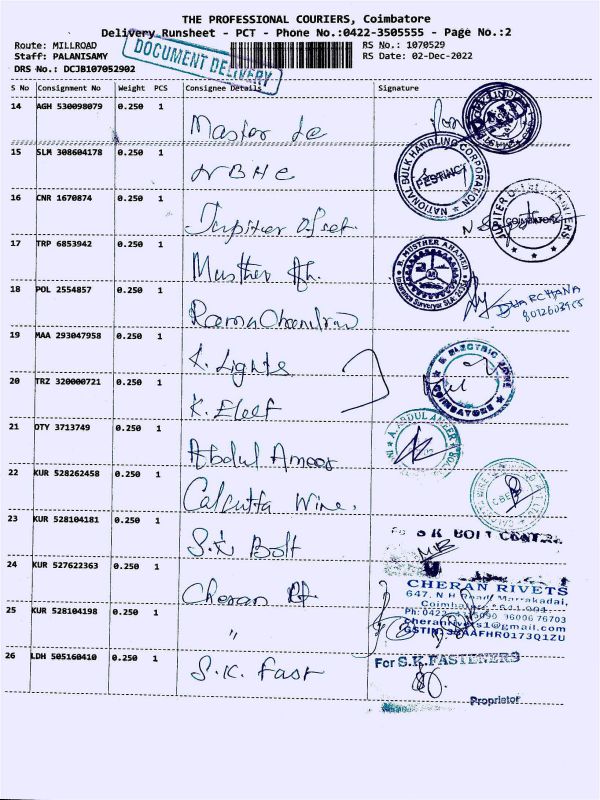 THE PROFESSIONAL COURIERS, Coimbatore
Delivery Runsheet - PCT - Phone No.:0422-3505555 - Page No.:2
Route: MILLROAD
RS No.: 1070529
Staff: PALANISAMY
RS Date: 02-Dec-2022
DRS No.: DCJB107052902
DOCUMENT DELIVERY
S No Consignment No Weight PCS Consignee Details Signature
14 AGH 530098079 0.250 1
Master
15 SLM 308604178 0.250 1
NBHC
NATIONAL BULK HANDLING CORPORATION
16 CNR 1670874 0.250 1
Jupiter Ofset
COIMBATORE
17 TRP 6853942 0.250 1
Musther Ah.
R. MUSTHER AHAMED
18 POL 2554857 0.250 1
RamaChandran
DWARCHANA
8012603955
19 MAA 293047958 0.250 1
K. Lights
20 TRZ 320000721 0.250 1
K. Elect
ELECTRIC ZONE
COIMBATORE
21 OTY 3713749 0.250 1
Abdul Ameer
22 KUR 528262458 0.250 1
Calcutta Wire.
23 KUR 528104181 0.250 1
S.K Bolt
S K BOLT
24 KUR 527622363 0.250 1
Cheran
CHERAN RIVETS
647, N H Road, Marrakadai,
Coimbatore
96006 76703
cheranrivets1@gmail.com
25 KUR 528104198 0.250 1
"
26 LDH 505160410 0.250 1
S.K. Fast
For S.K.FASTENERS
Proprietor